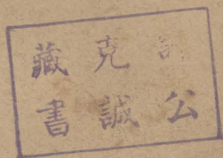 公
克誠
藏書